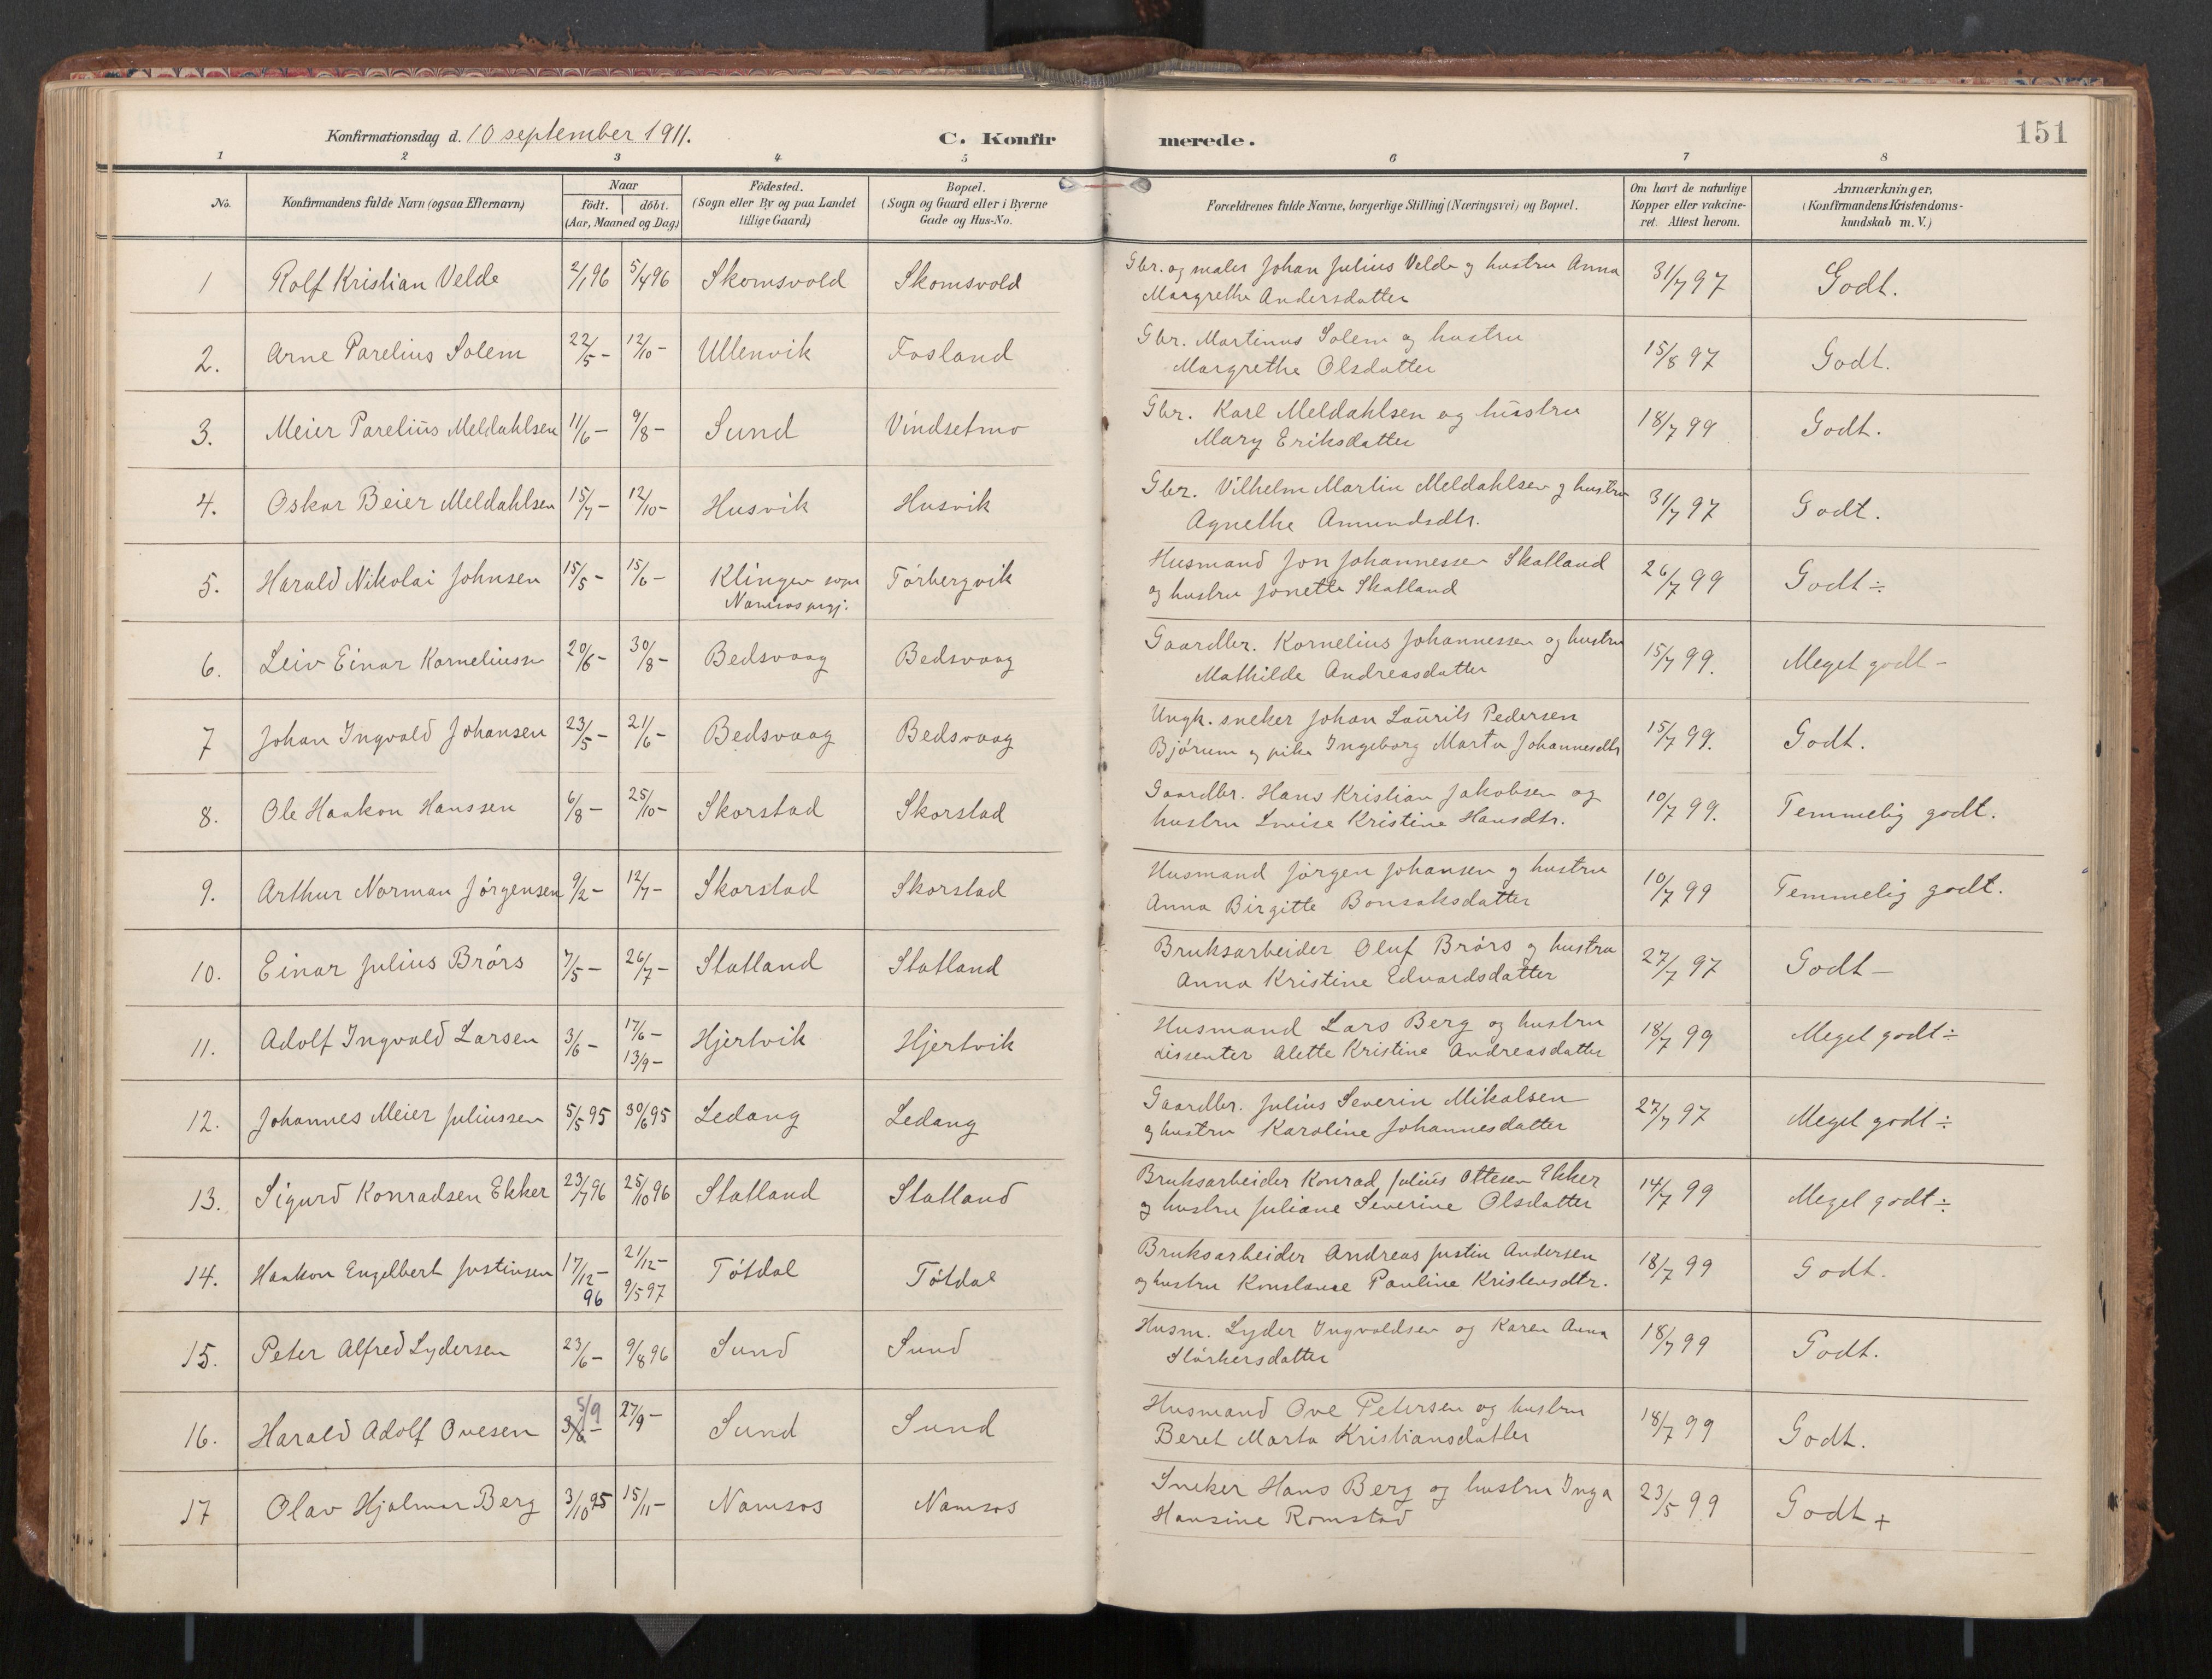 Konfirmationsdag d. 10 september 1911. C. Konfirmerede. 151
1 2 3 4 5 6 7 8
No. Konfirmandens fulde Navn (ogsaa Efternavn) Naar født. døbt. (Aar, Maaned og Dag) Fødested. (Sogn eller By og paa Landet tillige Gaard) Bopæl. (Sogn og Gaard eller i Byerne Gade og Hus-No. Forældrenes fulde Navne, borgerlige Stilling (Næringsvei) og Bopæl. Om havt de naturlige Kopper eller vakcineret. Attest herom. Anmærkninger. (Konfirmandens Kristendomskundskab m. V.)
1 Rolf Kristian Velde 2/1 96 5/4 96 Skomsvold Skomsvold Gbr. og maler Johan Julius Velde og hustru Anna 31/7 97 Godt.
Margrethe Andersdatter
2. Arne Parelius Solem 22/5 – 12/10 – Ullenvik Fosland Gbr. Martinus Solem og hustru 15/8 97 Godt.
Margrethe Olsdatter
3. Meier Parelius Meldahlsen 11/6 – 9/8 – Sund Vindsetmo Gbr. Karl Meldahlsen og hustru 18/7 99 Godt.
Mary Eriksdatter
4. Oskar Beier Meldahlsen 15/7 – 12/10 – Husvik Husvik Gbr. Vilhelm Martin Meldahlsen og hustru 31/7 97 Godt.
Agnethe Amundsdtr.
5. Harald Nikolai Johnsen 15/5 – 15/6 – Klingen sogn Tórbergvik Husmand Jon Johannessen Skatland 26/7 99 Godt ÷
Namsos prgj. og hustru Jonette Skatland
6. Leiv Einar Korneliussn 20/6 – 30/8 – Bedsvaag Bedsvaag Gaardbr. Kornelius Johannessen og hustru 15/7 99. Meget godt –
Mathilde Andreasdatter
7 Johan Ingvald Johansen 23/5 – 21/6 – Bedsvaag Bedsvaag Ungk. sneker Johan Laurits Pedersen 15/7 99. Godt.
Bjórum og pike Ingeborg Marta Johannesdtr
8. Ole Haakon Hanssen 6/8 – 25/10 – Skorstad Skorstad Gaardbr. Hans Kristian Jakobsen og 10/7 99. Temmelig godt.
hustru Lovise Kristine Hansdtr.
9. Arthur Norman Jórgensen 9/2 – 12/7 – Skorstad Skorstad Husmand Jórgen Johansen og hustru 10/7 99 Temmelig godt.
Anna Birgitte Bonsaksdatter
10. Einar Julius Brórs 7/5 – 26/7 – Statland Statland Bruksarbeider Oluf Brórs og hustru 27/7 97 Godt –
Anna Kristine Edvardsdatter
11. Adolf Ingvald Larsen 3/6 – 17/6 – 13/9 – Hjertvik Hjertvik Husmand Lars Berg og hustru 18/7 99 Meget godt ÷
dissenter Alette Kristine Andreasdatter
12. Johannes Meier Juliussen 5/5 95 30/6 95 Ledang Ledang Gaardbr. Julius Severin Mikalsen 27/7 97 Meget godt ÷
og hustru Karoline Johannesdatter
13. Sigurd Konradsen Ekker 23/7 96 25/10 96 Statland Statland Bruksarbeider Konrad Julius Ottesen Ekker 14/7 99 Meget godt ÷
og hustru Juliane Severine Olsdatter
14. Haakon Engelbert Justinsen 17/12 – 96 21/12 – 9/5 97 Tótdal Tótdal Bruksarbeider Andreas Justin Andersen 18/7 99 Godt.
og hustru Konstanse Pauline Kristensdtr.
15. Peter Alfred Lydersen 23/6 – 9/8 96 Sund Sund Husm. Lyder Ingvaldsen og Karen Anna 18/7 99 Godt.
Stórkersdatter
16. Harald Adolf Ovesen 5/9 3/6 – 27/9 – Sund Sund Husmand Ove Petersen og hustru 18/7 99 Godt.
Beret Marta Kristiansdatter
17 Olav Hjalmar Berg 3/10 95 15/11 – Namsos Namsos Sneker Hans Berg og hustru Inga 23/5 99 Godt +
Hansine Romstad